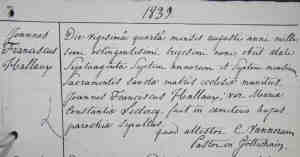 1839
Joannes
Franciscus
Hallaux
Die vigesima quarta mensis augusti anni mille-
simi octingentesimi trigesimi noni obiit aetatis
septuaginta septem annorum et septem mensium
Sacramentis Sanctae matris ecclesiae munitus
Joannes Franciscus Hallaux, vir Mariae
Constantiae Leclercq, fuit in cemeterio hujus
parochiae sepultus
quod attestor C. Vanneram
Pastor in Jollechain